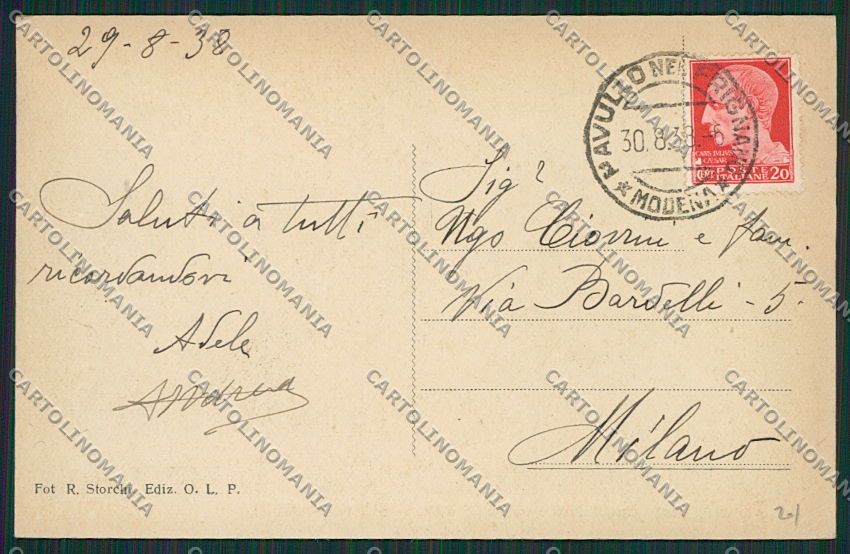 29-8-38
Saluti a tutti
ricordandovi
Adele
Andrea
Fot R. Storchi Ediz. O. L. P.
PAVULLO NEL FRIGNANO
30.8.38.-6
* MODENA
CAIVS IVLIVS
CAESAR
CENT 20
POSTE
ITALIANE
Sigr
Ugo e fam.
Via Bardelli - 5.
Milano
20/
CARTOLINOMANIA